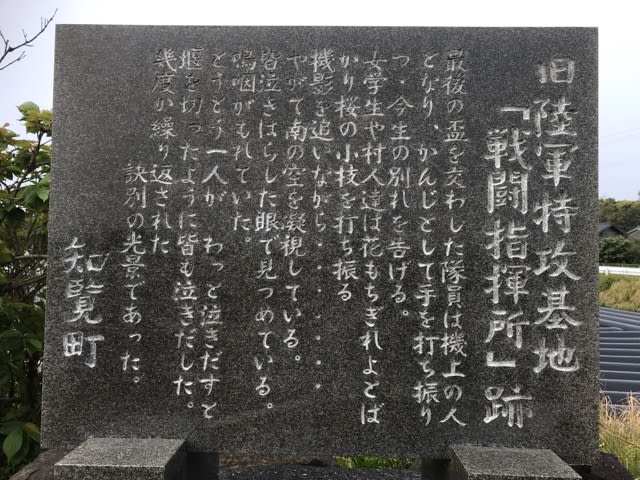 旧陸軍特攻基地
「戦闘指揮所」跡
最後の盃を交わした隊員は機上の人
となり、かんじとして手を打ち振り
つゝ今生の別れを告げる。
女学生や村人達は花もちぎれよとば
かり桜の小枝を打ち振る
機影を追いながら・・・・・・
やがて南の空を凝視している。
皆泣きはらした眼で見つめている。
嗚咽がもれていた。
とうとう一人が わっと泣きだすと
堰を切ったように皆も泣きだした。
幾度か繰り返された
訣別の光景であった。
知覧町